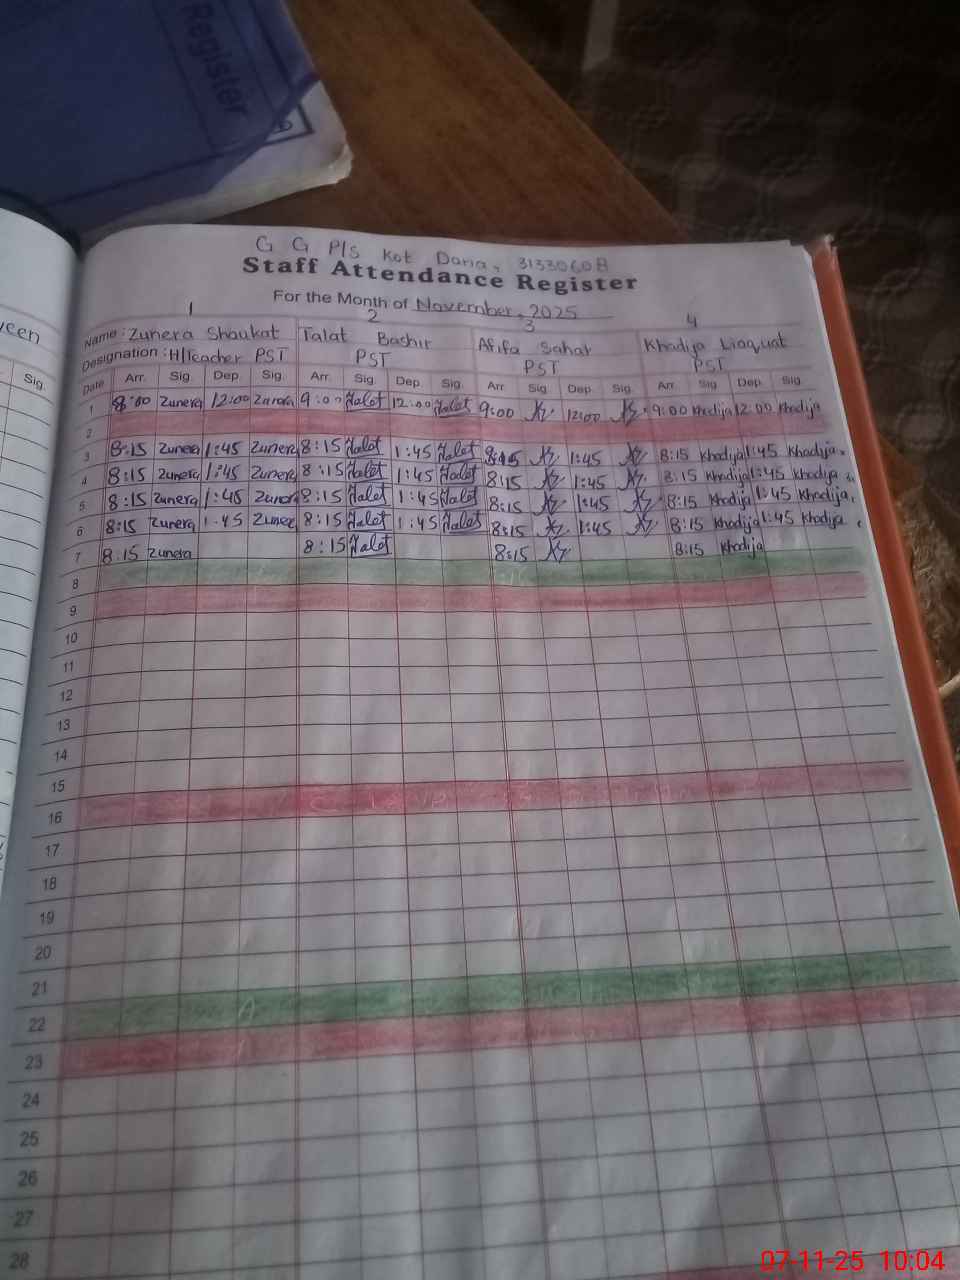 Register
G G P/S Kot Daria, 31330608
Staff Attendance Register
For the Month of November, 2025
1 2 3 4
Name : Zunera Shaukat Talat Bashir Afifa Sahar Khadija Liaquat
Designation : H/Teacher PST PST PST PST
Date Arr. Sig. Dep. Sig. Arr. Sig. Dep. Sig. Arr. Sig. Dep. Sig. Arr. Sig. Dep. Sig.
1 8:00 Zunera 12:00 Zunera 9:00 Talat 12:00 Talat 9:00 12:00 9:00 Khadija 12:00 Khadija
2
3 8:15 Zunera 1:45 Zunera 8:15 Talat 1:45 Talat 8:15 1:45 8:15 Khadija 1:45 Khadija
4 8:15 Zunera 1:45 Zunera 8:15 Talat 1:45 Talat 8:15 1:45 8:15 Khadija 1:45 Khadija
5 8:15 Zunera 1:45 Zunera 8:15 Talat 1:45 Talat 8:15 1:45 8:15 Khadija 1:45 Khadija
6 8:15 Zunera 1:45 Zunera 8:15 Talat 1:45 Talat 8:15 1:45 8:15 Khadija 1:45 Khadija
7 8:15 Zunera 8:15 Talat 8:15 8:15 Khadija
8
9
10
11
12
13
14
15
16
17
18
19
20
21
22
23
24
25
26
27
28
een
Sig.
07-11-25 10:04